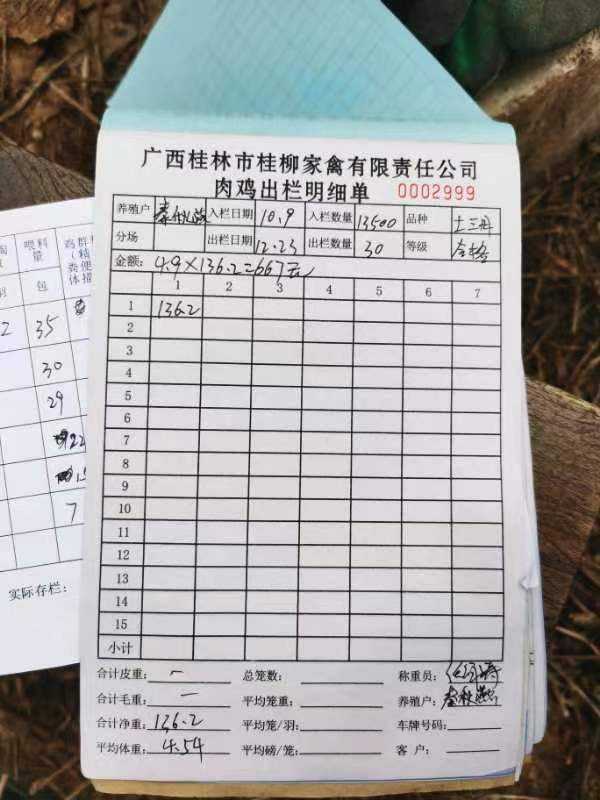 广西桂林市桂柳家禽有限责任公司
肉鸡出栏明细单 0002999
养殖户 秦秋燕 入栏日期 10.9 入栏数量 13500 品种 土三
分场 出栏日期 12.23 出栏数量 30 等级 合格
金额: 4.9×136.2=667元
1 2 3 4 5 6 7
1 136.2
2
3
4
5
6
7
8
9
10
11
12
13
14
15
小计
合计皮重: 一 总笼数: 称重员:
合计毛重: 一 平均笼重: 养殖户: 秦秋燕
合计净重: 136.2 平均笼/羽: 车牌号码:
平均体重: 4.54 平均磅/笼: 客户:
喂料 鸡群
量 (精
粪便
包 体描
2 35
30
29
22
15
7
实际存栏: